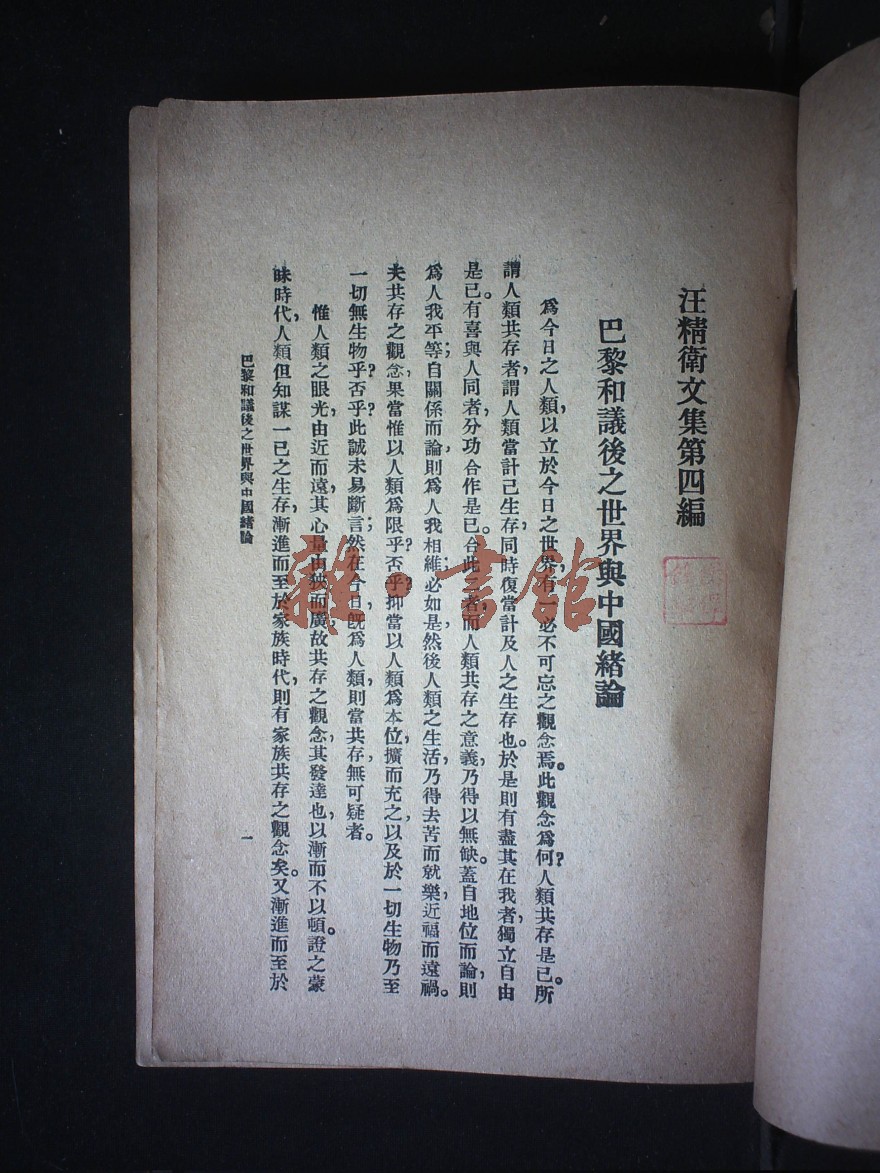 汪精衛文集第四編
巴黎和議後之世界與中國緒論
為今日之人類，以立於今日之世界，有一必不可忘之觀念焉。此觀念為何？人類共存是已。所
謂人類共存者，謂人類當計己生存，同時復當計及人之生存也。於是則有盡其在我者，獨立自由
是已。有喜與人同者，分功合作是已。合此二者，而人類共存之意義，乃得以無缺。蓋自地位而論，則
為人我平等；自關係而論，則為人我相維；必如是然後人類之生活，乃得去苦而就樂，近福而遠禍。
夫共存之觀念，果當惟以人類為限乎？否乎？抑當以人類為本位，擴而充之，以及於一切生物，乃至
一切無生物乎？否乎？此誠未易斷言；然在今日，既為人類，則當共存，無可疑者。
惟人類之眼光，由近而遠，其心量由狹而廣，故共存之觀念，其發達也，以漸而不以頓。證之蒙
昧時代，人類但知謀一己之生存，漸進而至於家族時代，則有家族共存之觀念矣。又漸進而至於
巴黎和議後之世界與中國緒論
一
雜·書館